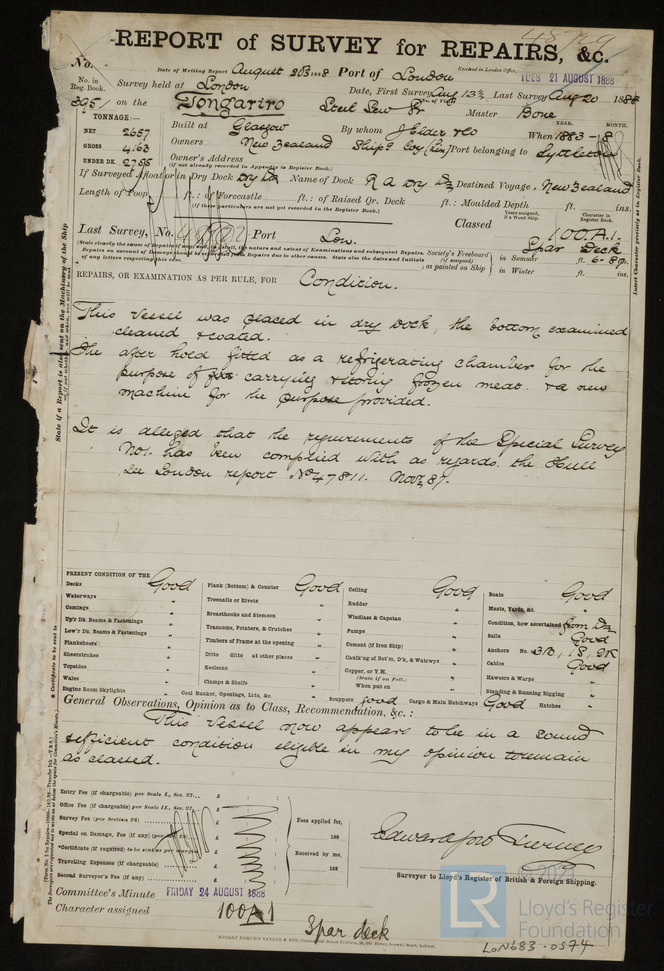 REPORT of SURVEY for REPAIRS, &c.
No.
Date of Writing Report August 20th 1888 Port of London
Received in London Office, TUES 21 AUGUST 1888
No. in Reg. Book.
Survey held at London Date, First Survey Aug 13th Last Survey Aug 20 1888
3951 on the Tongariro Steel Scw Br Master Bone
TONNAGE:—
NET 2657
GROSS 4163
UNDER DK. 2755
Built at Glasgow By whom J Elder & Co When 1883 - 8
YEAR. MONTH.
Owners New Zealand Ship'g Coy (Lim) Port belonging to Lyttleton
Owner's Address
(if not already recorded in Appendix to Register Book.)
If Surveyed Afloat or in Dry Dock Dry Dk Name of Dock R A Dry Dk Destined Voyage New Zealand
Length of Poop ft.: of Forecastle ft.: of Raised Qr. Deck ft.: Moulded Depth ft. ins.
(If these particulars are not yet recorded in the Register Book.)
Last Survey, No. Port Lon.
Classed 100.A.1.
Spar Deck
Years assigned, if a Wood Ship.
Character in Register Book.
Society's Freeboard (if assigned) as painted on Ship
in Summer ft. 6-8 ins.
in Winter ft. ins.
REPAIRS, OR EXAMINATION AS PER RULE, FOR Condition.
This vessel was placed in dry dock, the bottom examined
cleaned & coated.
The after hold fitted as a refrigerating chamber for the
purpose of carrying & storing frozen meat. & a new
machine for the purpose provided.
It is alleged that the requirements of the Special Survey
No 1. has been complied with as regards the Hull
See London report No 47811. Nov 87.
PRESENT CONDITION OF THE
Decks Good
Waterways "
Comings "
Up'r Dk. Beams & Fastenings "
Low'r Dk. Beams & Fastenings "
Planksheers "
Sheerstrakes "
Topsides "
Wales "
Engine Room Skylights "
Plank (Bottom) & Counter Good
Treenails or Rivets "
Breasthooks and Stemson "
Transoms, Pointers, & Crutches "
Timbers of Frame at the opening "
Ditto ditto at other places "
Keelsons "
Clamps & Shelfs "
Coal Bunker, Openings, Lids, &c. "
Ceiling Good
Rudder "
Windlass & Capstan "
Pumps "
Cement (if Iron Ship) "
Caulk'ng of Bot'm, D'k, & Watrwys "
Copper, or Y.M. "
(State if on Felt.)
When put on
Scuppers Good Cargo & Main Hatchways Good Hatches "
Boats Good
Masts, Yards, &c. "
Condition, how ascertained from Dk
Sails Good
Anchors No. 3B, 1S, 2K
Cables Good
Hawsers & Warps "
Standing & Running Rigging "
General Observations, Opinion as to Class, Recommendation, &c.:
This vessel now appears to be in a sound
& efficient condition eligible in my opinion to remain
as classed.
Entry Fee (if chargeable) per Scale I., Sec. 27... £
Office Fee (if chargeable) per Scale II., Sec. 27... £
Survey Fee (per Section 28) £
Special on Damage, Fee (if any) (per Sec. 28) £
*Certificate (if required) £
Travelling Expenses (if chargeable) £
Second Surveyor's Fee (if any) £
Fees applied for,
188
Received by me,
188
Surveyor to Lloyd's Register of British & Foreign Shipping.
Committee's Minute FRIDAY 24 AUGUST 1888
Character assigned 100A1
Spar deck
© 2021
LR
Lloyd's Register
Foundation
LON683-0574